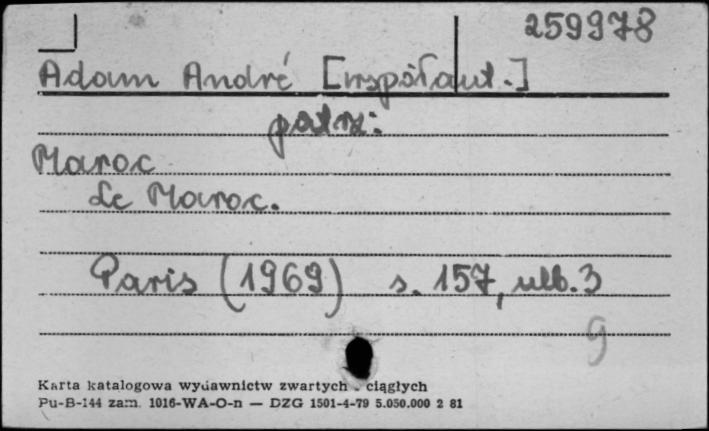 259978
Adam André [współaut.]
patrz:
Maroc
Le Maroc.
Paris (1969) s. 157, nlb. 3
9
Karta katalogowa wydawnictw zwartych - ciągłych
Pu-B-144 zam. 1016-WA-O-n — DZG 1501-4-79 5.050.000 2 81